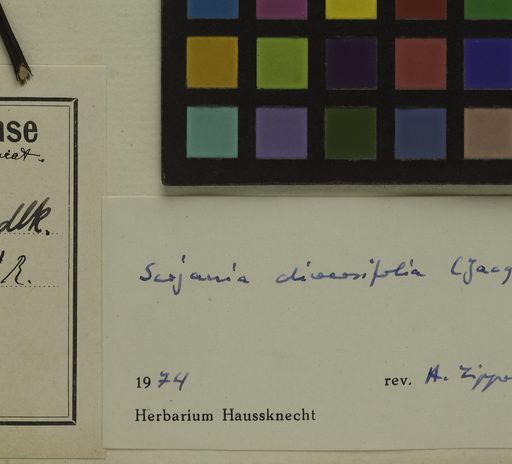 nse
dlk.
R.
Serjania diversifolia (Jacq
1974
rev. A. Zippo
Herbarium Haussknecht